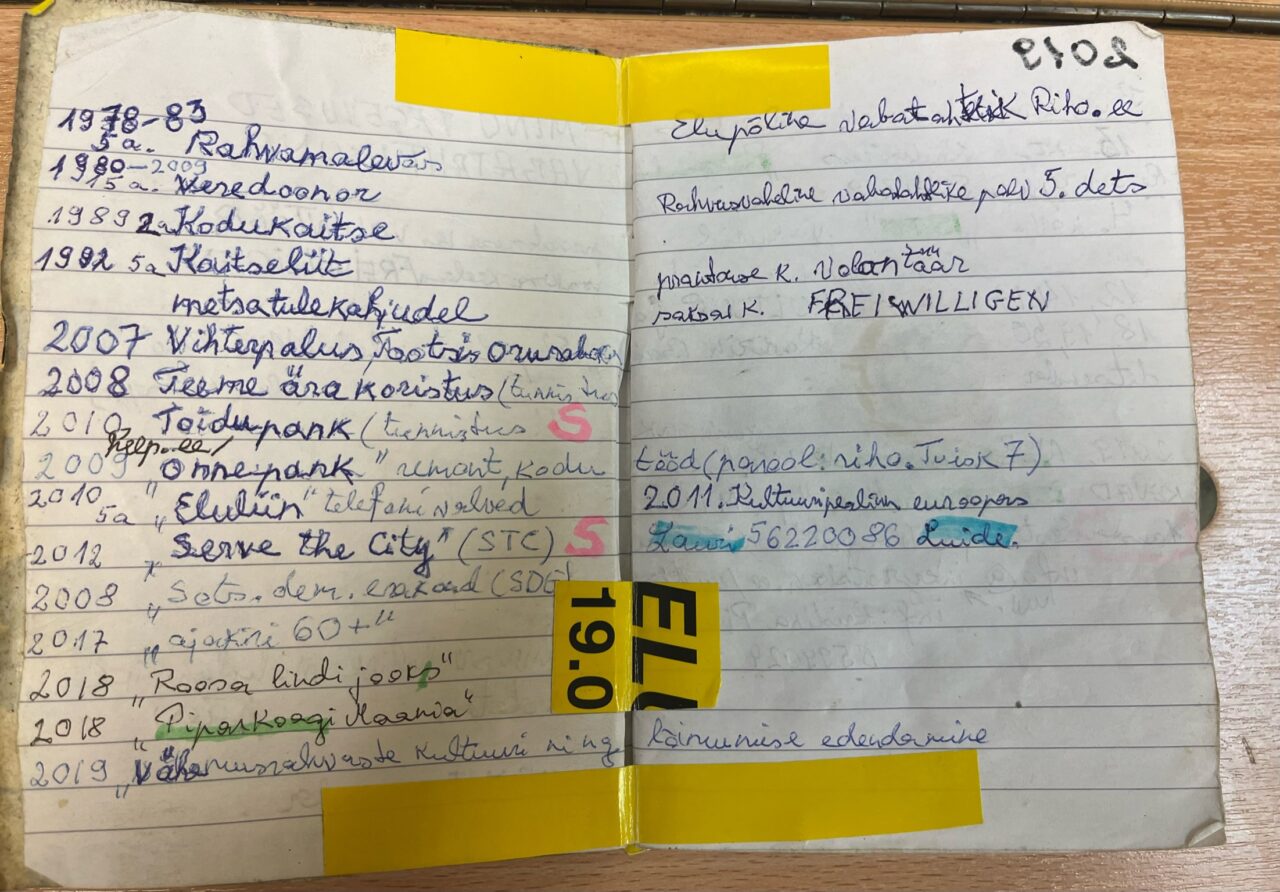 1978-83
5a. Rahvamalevas
1980-2009
15a. Veredoonor
1989 2a Kodukaitse
1992 5a Kaitseliit
metsatulekahjudel
2007 Vihterpalus, Tootsis
2008 Teeme ära koristus (tunnistus
2010 Toidupank (tunnistus S
help.ee/
2009 "Õnnepank" remont, kodu
2010 5a "Eluliin" telefoni valved
2012 "Serve the City" (STC) S
2008 "Sots.dem. erakond (SDE)
2017 "ajakiri 60+"
2018 "Roosa lindi jooks"
2018 "Piparkoogi Maania"
2019 "Vähemusrahvaste kultuuri ning
19.0
2019
Elupõline vabatahtlik Riho.ee
Rahvusvaheline vabatahtlike päev 5. dets
prantsuse k. Volontäär
saksa k. FREIWILLIGEN
tööd (panool: riho.Tuisk 7)
2011. Kultuuripealinn euroopas
Lauri 56220086 Luide.
EL
lõimumise edendamine